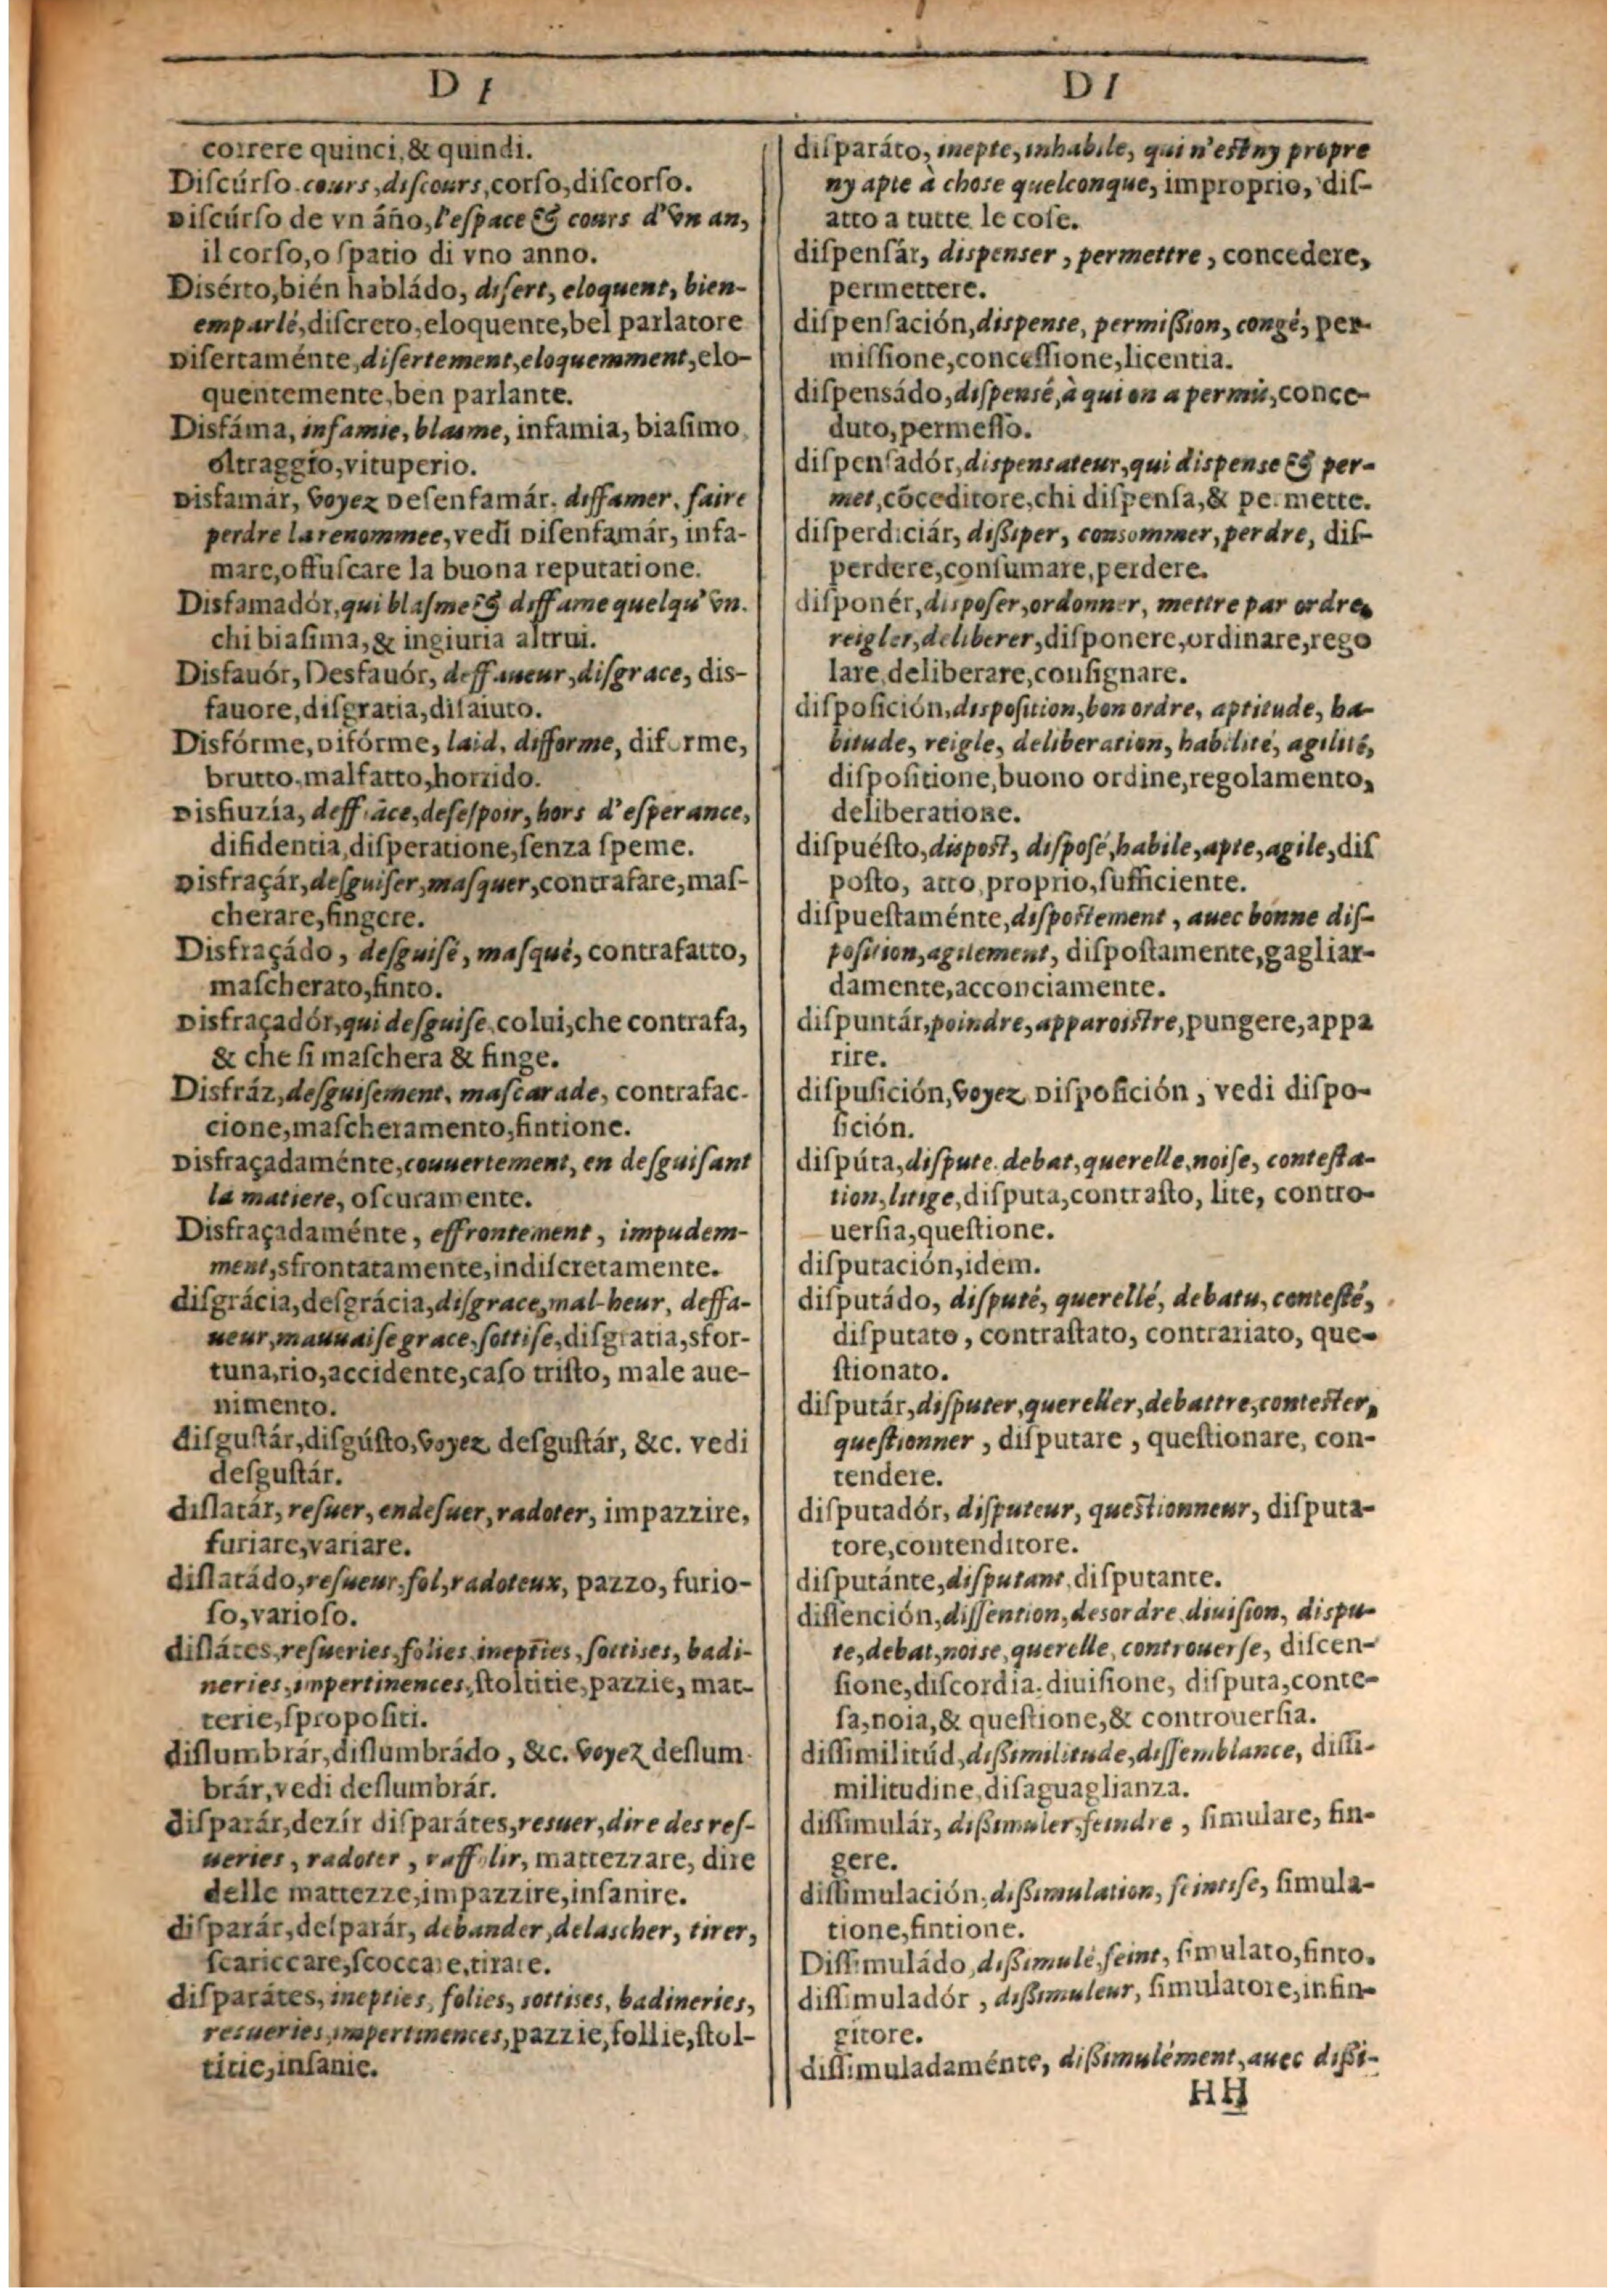 D I
D I
correre quinci, & quindi.
Diſcúrſo. cours, diſcours, corſo, diſcorſo.
Diſcúrſo de vn áño, l'eſpace & cours d'vn an,
il corſo, o ſpatio di vno anno.
Diſérto, bién habládo, diſert, eloquent, bien-
emparlé, diſcreto, eloquente, bel parlatore
Diſertaménte, diſertement, eloquemment, elo-
quentemente, ben parlante.
Disfáma, infamie, blasme, infamia, biaſimo,
oltraggio, vituperio.
Disfamár, voyez Deſenfamár. diffamer, faire
perdre la renommee, vedi Diſenfamár, infa-
mare, offuſcare la buona reputatione.
Disfamadór, qui blaſme & diffame quelqu'vn.
chi biaſima, & ingiuria altrui.
Disfauór, Desfauór, deffaueur, diſgrace, dis-
fauore, diſgratia, diſaiuto.
Disfórme, Difórme, laid, difforme, diforme,
brutto, malfatto, horrido.
Disfiuzía, deffiāce, deſeſpoir, hors d'eſperance,
difidentia, diſperatione, ſenza ſpeme.
Disfraçár, deſguiſer, maſquer, contrafare, maſ-
cherare, fingere.
Disfraçádo, deſguiſé, maſqué, contrafatto,
maſcherato, finto.
Disfraçadór, qui deſguiſe, colui, che contrafa,
& che ſi maſchera & finge.
Disfráz, deſguiſement, maſcarade, contrafac-
cione, maſcheramento, fintione.
Disfraçadaménte, couuertement, en deſguiſant
la matiere, oſcuramente.
Disfraçadaménte, effrontement, impudem-
ment, sfrontatamente, indiſcretamente.
diſgrácia, deſgrácia, diſgrace, mal-heur, deffa-
ueur, mauuaiſe grace, ſottiſe, diſgratia, sfor-
tuna, rio, accidente, caſo triſto, male aue-
nimento.
diſguſtár, diſgúſto, voyez deſguſtár, &c. vedi
deſguſtár.
diſlatár, reſuer, endeſuer, radoter, impazzire,
furiare, variare.
diſlatádo, reſueur, fol, radoteux, pazzo, furio-
ſo, varioſo.
diſlátes, reſueries, folies, inepties, ſottises, badi-
neries, impertinences, ſtoltitie, pazzie, mat-
terie, ſpropoſiti.
diſlumbrár, diſlumbrádo, &c. voyez deſlum-
brár, vedi deſlumbrár.
diſparár, dezír diſparátes, resuer, dire des reſ-
ueries, radoter, raffolir, mattezzare, dire
delle mattezze, impazzire, inſanire.
diſparár, deſparár, debander, delascher, tirer,
ſcariccare, ſcoccare, tirare.
diſparátes, inepties, folies, sottises, badineries,
resueries, impertinences, pazzie, follie, ſtol-
titie, inſanie.
diſparáto, inepte, inhabile, qui n'est ny propre
ny apte à chose quelconque, improprio, diſ-
atto a tutte le coſe.
diſpenſár, dispenser, permettre, concedere,
permettere.
diſpenſación, dispense, permiſſion, congé, per-
miſſione, conceſſione, licentia.
diſpensádo, diſpensé, à qui on a permis, conce-
duto, permeſſo.
diſpenſadór, dispensateur, qui dispense & per-
met, cōceditore, chi diſpenſa, & permette.
diſperdiciár, diſſiper, consommer, perdre, diſ-
perdere, conſumare, perdere.
diſponér, disposer, ordonner, mettre par ordre,
reigler, deliberer, diſponere, ordinare, rego
lare, deliberare, conſignare.
diſpoſición, dispoſition, bon ordre, aptitude, ha-
bitude, reigle, deliberation, habilité, agilité,
diſpoſitione, buono ordine, regolamento,
deliberatione.
diſpuéſto, dispost, diſposé, habile, apte, agile, diſ
poſto, atto, proprio, ſufficiente.
diſpueſtaménte, dispostement, auec bonne diſ-
poſition, agilement, diſpoſtamente, gagliar-
damente, acconciamente.
diſpuntár, poindre, apparoistre, pungere, appa
rire.
diſpuſición, voyez Diſpoſición, vedi diſpo-
ſición.
diſpúta, diſpute, debat, querelle, noiſe, conteſta-
tion, litige, diſputa, contraſto, lite, contro-
uerſia, queſtione.
diſputación, idem.
diſputádo, diſputé, querellé, debatu, conteſté,
diſputato, contraſtato, contrariato, que-
ſtionato.
diſputár, diſputer, quereller, debattre, contester,
queſtionner, diſputare, queſtionare, con-
tendere.
diſputadór, diſputeur, questionneur, diſputa-
tore, contenditore.
diſputánte, diſputant, diſputante.
diſſención, diſſention, desordre, diuiſion, dispu-
te, debat, noise, querelle, controuerſe, diſcen-
ſione, diſcordia, diuiſione, diſputa, conte-
ſa, noia, & queſtione, & controuerſia.
diſſimilitúd, diſſimilitude, diſſemblance, diſſi-
militudine, diſaguaglianza.
diſſimulár, diſſimuler, feindre, ſimulare, fin-
gere.
diſſimulación, diſſimulation, feintiſe, ſimula-
tione, fintione.
Diſſimuládo, diſſimulé, feint, ſimulato, finto.
diſſimuladór, diſſimuleur, ſimulatore, infin-
gitore.
diſſimuladaménte, diſſimulément, auec diſſi-
HH